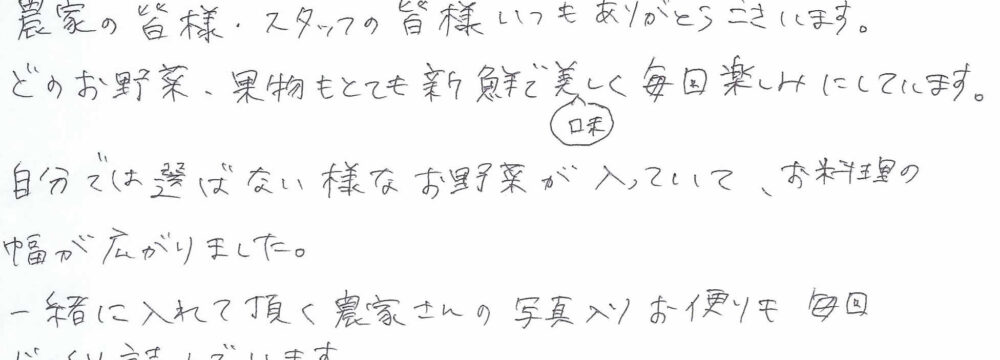 農家の皆様・スタッフの皆様いつもありがとうございます。
どのお野菜、果物もとても新鮮で美しく毎回楽しみにしています。
味
自分では選ばない様なお野菜が入っていて、お料理の
幅が広がりました。
一緒に入れて頂く農家さんの写真入りお便りも毎回
じっくり読んでいます